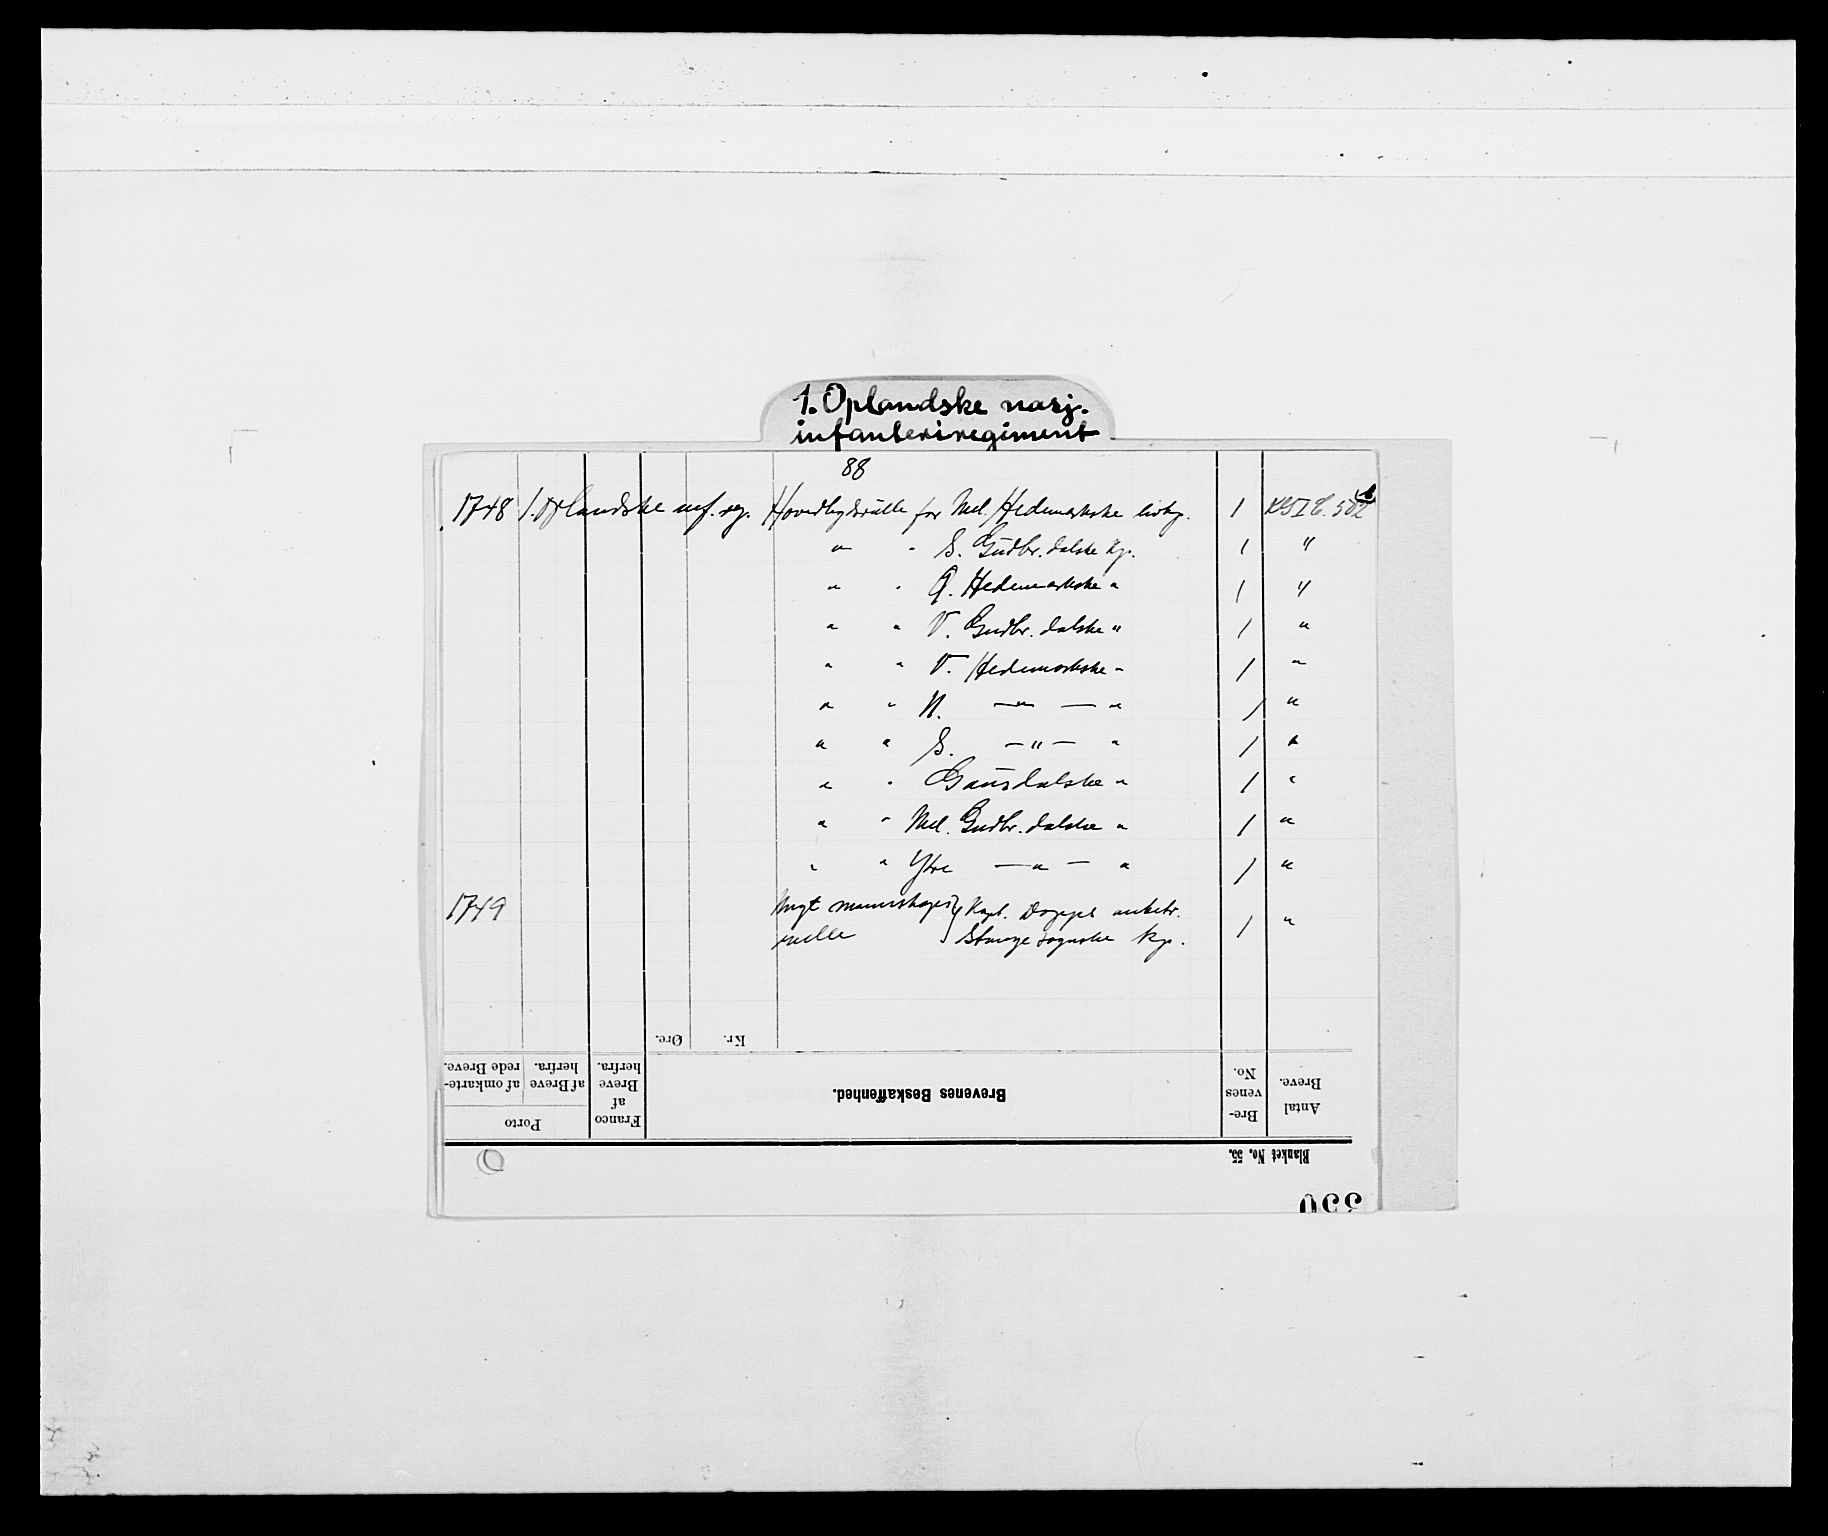 1. Oplandske nasj.
infanteriregiment
88
1748 1. Oplandske inf. reg. Hovedlydsrulle for Mel. Hedemarkske livkp. 1
" " S. Gudbr. dalske Kp. 1 "
" " Ø. Hedemarkske " 1 "
" " V. Gudbr. dalske " 1 "
" " V. Hedemarkske " 1 "
" " N. — " — " 1 "
" " S. — " — " 1 "
" " Gausdalske " 1 "
" " Mel. Gudbr. dalske " 1 "
" " Ytre — " — " 1 "
1749 mannskaps Kapt. 1 "
rulle Stange sognske kp.
Øre. Kr.
Porto
af omkarte-
rede Breve.
af Breve
herfra.
Franco
af
Breve
herfra.
Brevenes Beskaffenhed.
Bre-
venes
No.
Antal
Breve.
Blanket No. 55.